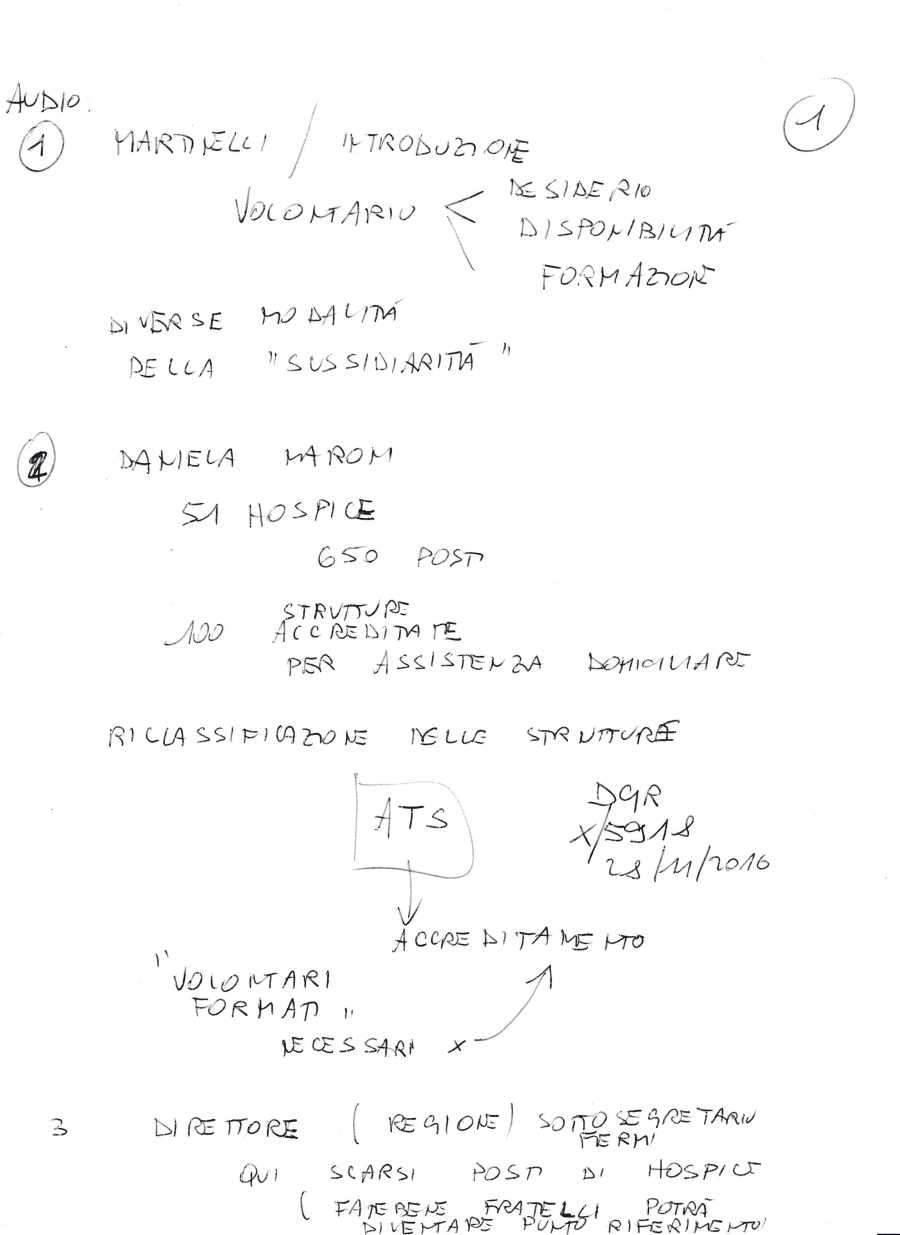 AUDIO.
1
1 MARTINELLI / INTRODUZIONE
VOLONTARIU < DESIDERIO
DISPONIBILITÁ
FORMAZIONE
DIVERSE MODALITÁ
DELLA "SUSSIDIARITÁ"
2 DANIELA MARONI
51 HOSPICE
650 POSTI
STRUTTURE
100 ACCREDITATE
PER ASSISTENZA DOMICILIARE
RICLASSIFICAZIONE DELLE STRUTTURE
ATS
DGR
X/5918
28/11/2016
ACCREDITAMENTO
"VOLONTARI
FORMATI"
NECESSARI X
3 DIRETTORE (REGIONE) SOTTOSEGRETARIU
FERMI
QUI SCARSI POSTI DI HOSPICE
( FATEBENE FRATELLI POTRÁ
DIVENTARE PUNTO RIFERIMENTO)